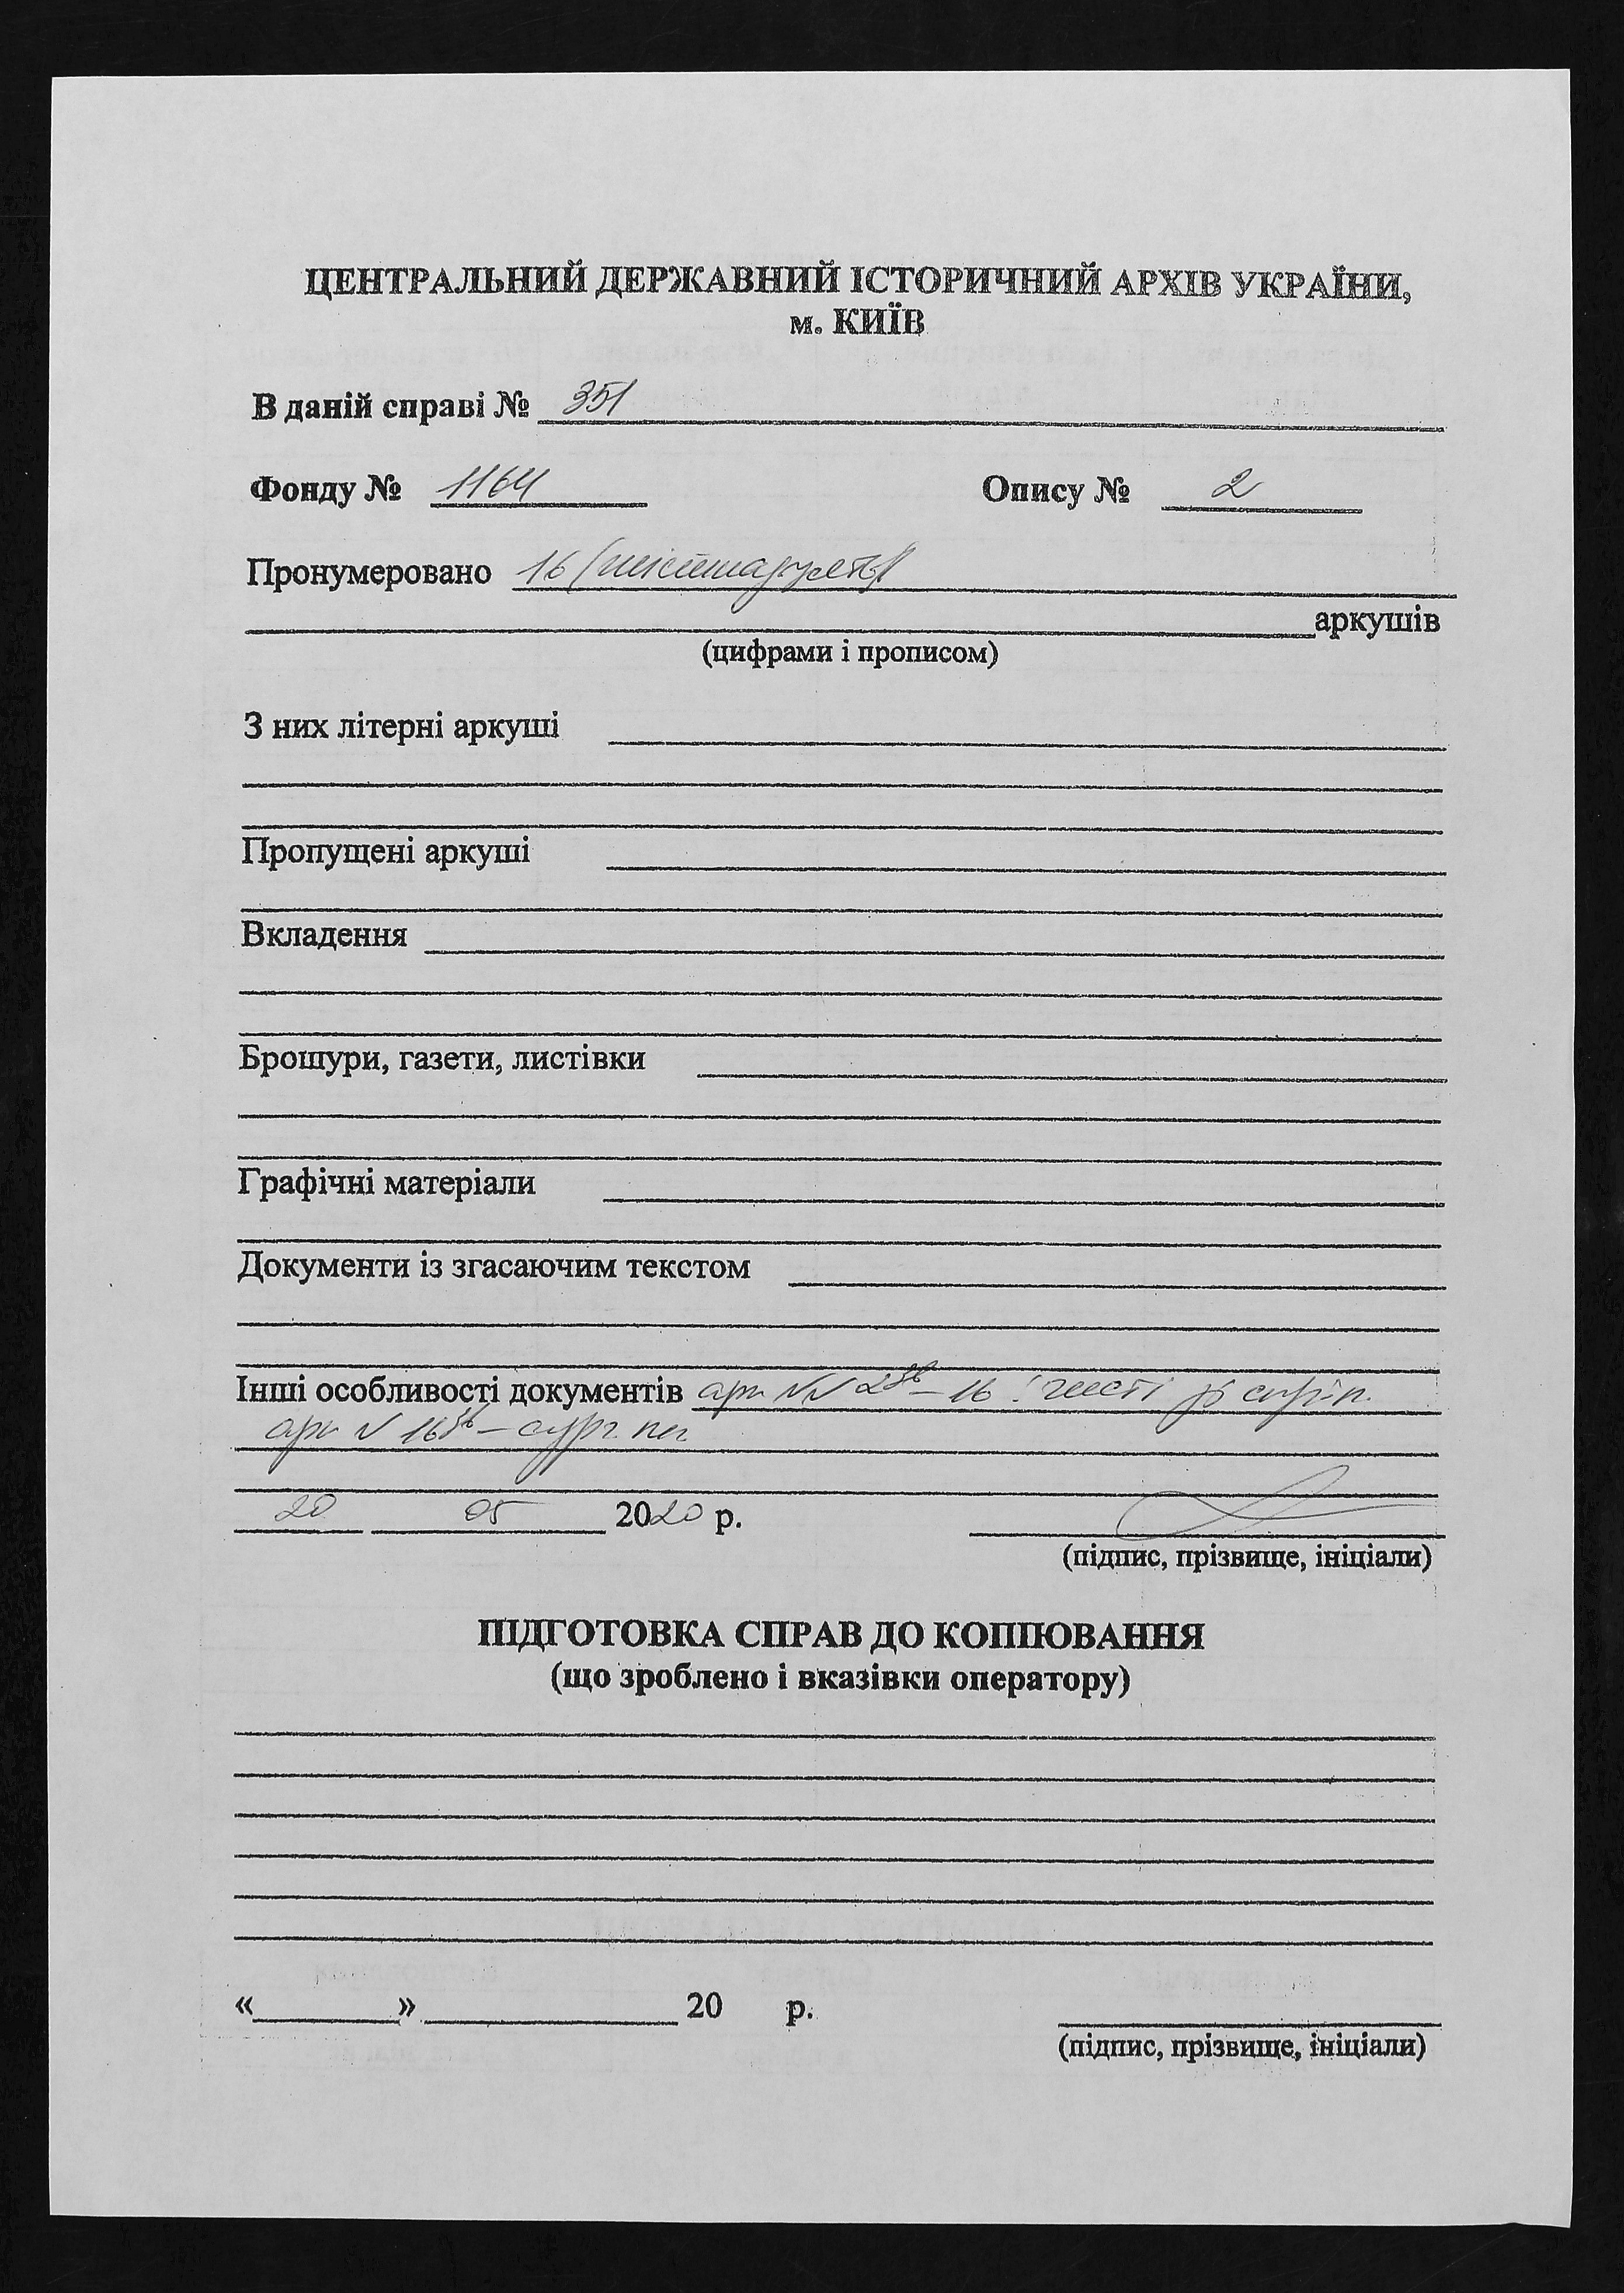 ЦЕНТРАЛЬНИЙ ДЕРЖАВНИЙ ІСТОРИЧНИЙ АРХІВ УКРАЇНИ,
м. КИЇВ
В даній справі № 351
Фонду № 1164 Опису № 2
Пронумеровано 16 (шістнадцять)
аркушів
(цифрами і прописом)
З них літерні аркуші
Пропущені аркуші
Вкладення
Брошури, газети, листівки
Графічні матеріали
Документи із згасаючим текстом
Інші особливості документів арк NN 2зв – 16 : чисті
арк N 16зв – сург. печ
20 05 2020 р.
(підпис, прізвище, ініціали)
ПІДГОТОВКА СПРАВ ДО КОПІЮВАННЯ
(що зроблено і вказівки оператору)
« » 20 р.
(підпис, прізвище, ініціали)